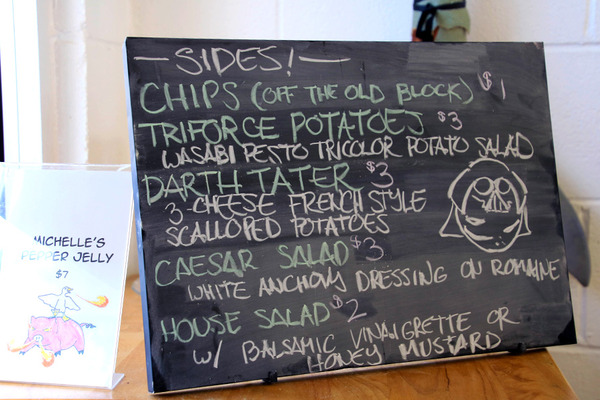 —SIDES!—
CHIPS (OFF THE OLD BLOCK) $1
TRIFORCE POTATOES $3
WASABI PESTO TRICOLOR POTATO SALAD
DARTH TATER $3
3-CHEESE FRENCH STYLE
SCALLOPED POTATOES
CAESAR SALAD $3
WHITE ANCHOVY DRESSING ON ROMAINE
HOUSE SALAD $2
W/ BALSAMIC VINAIGRETTE OR
HONEY MUSTARD
MICHELLE'S
PEPPER JELLY
$7